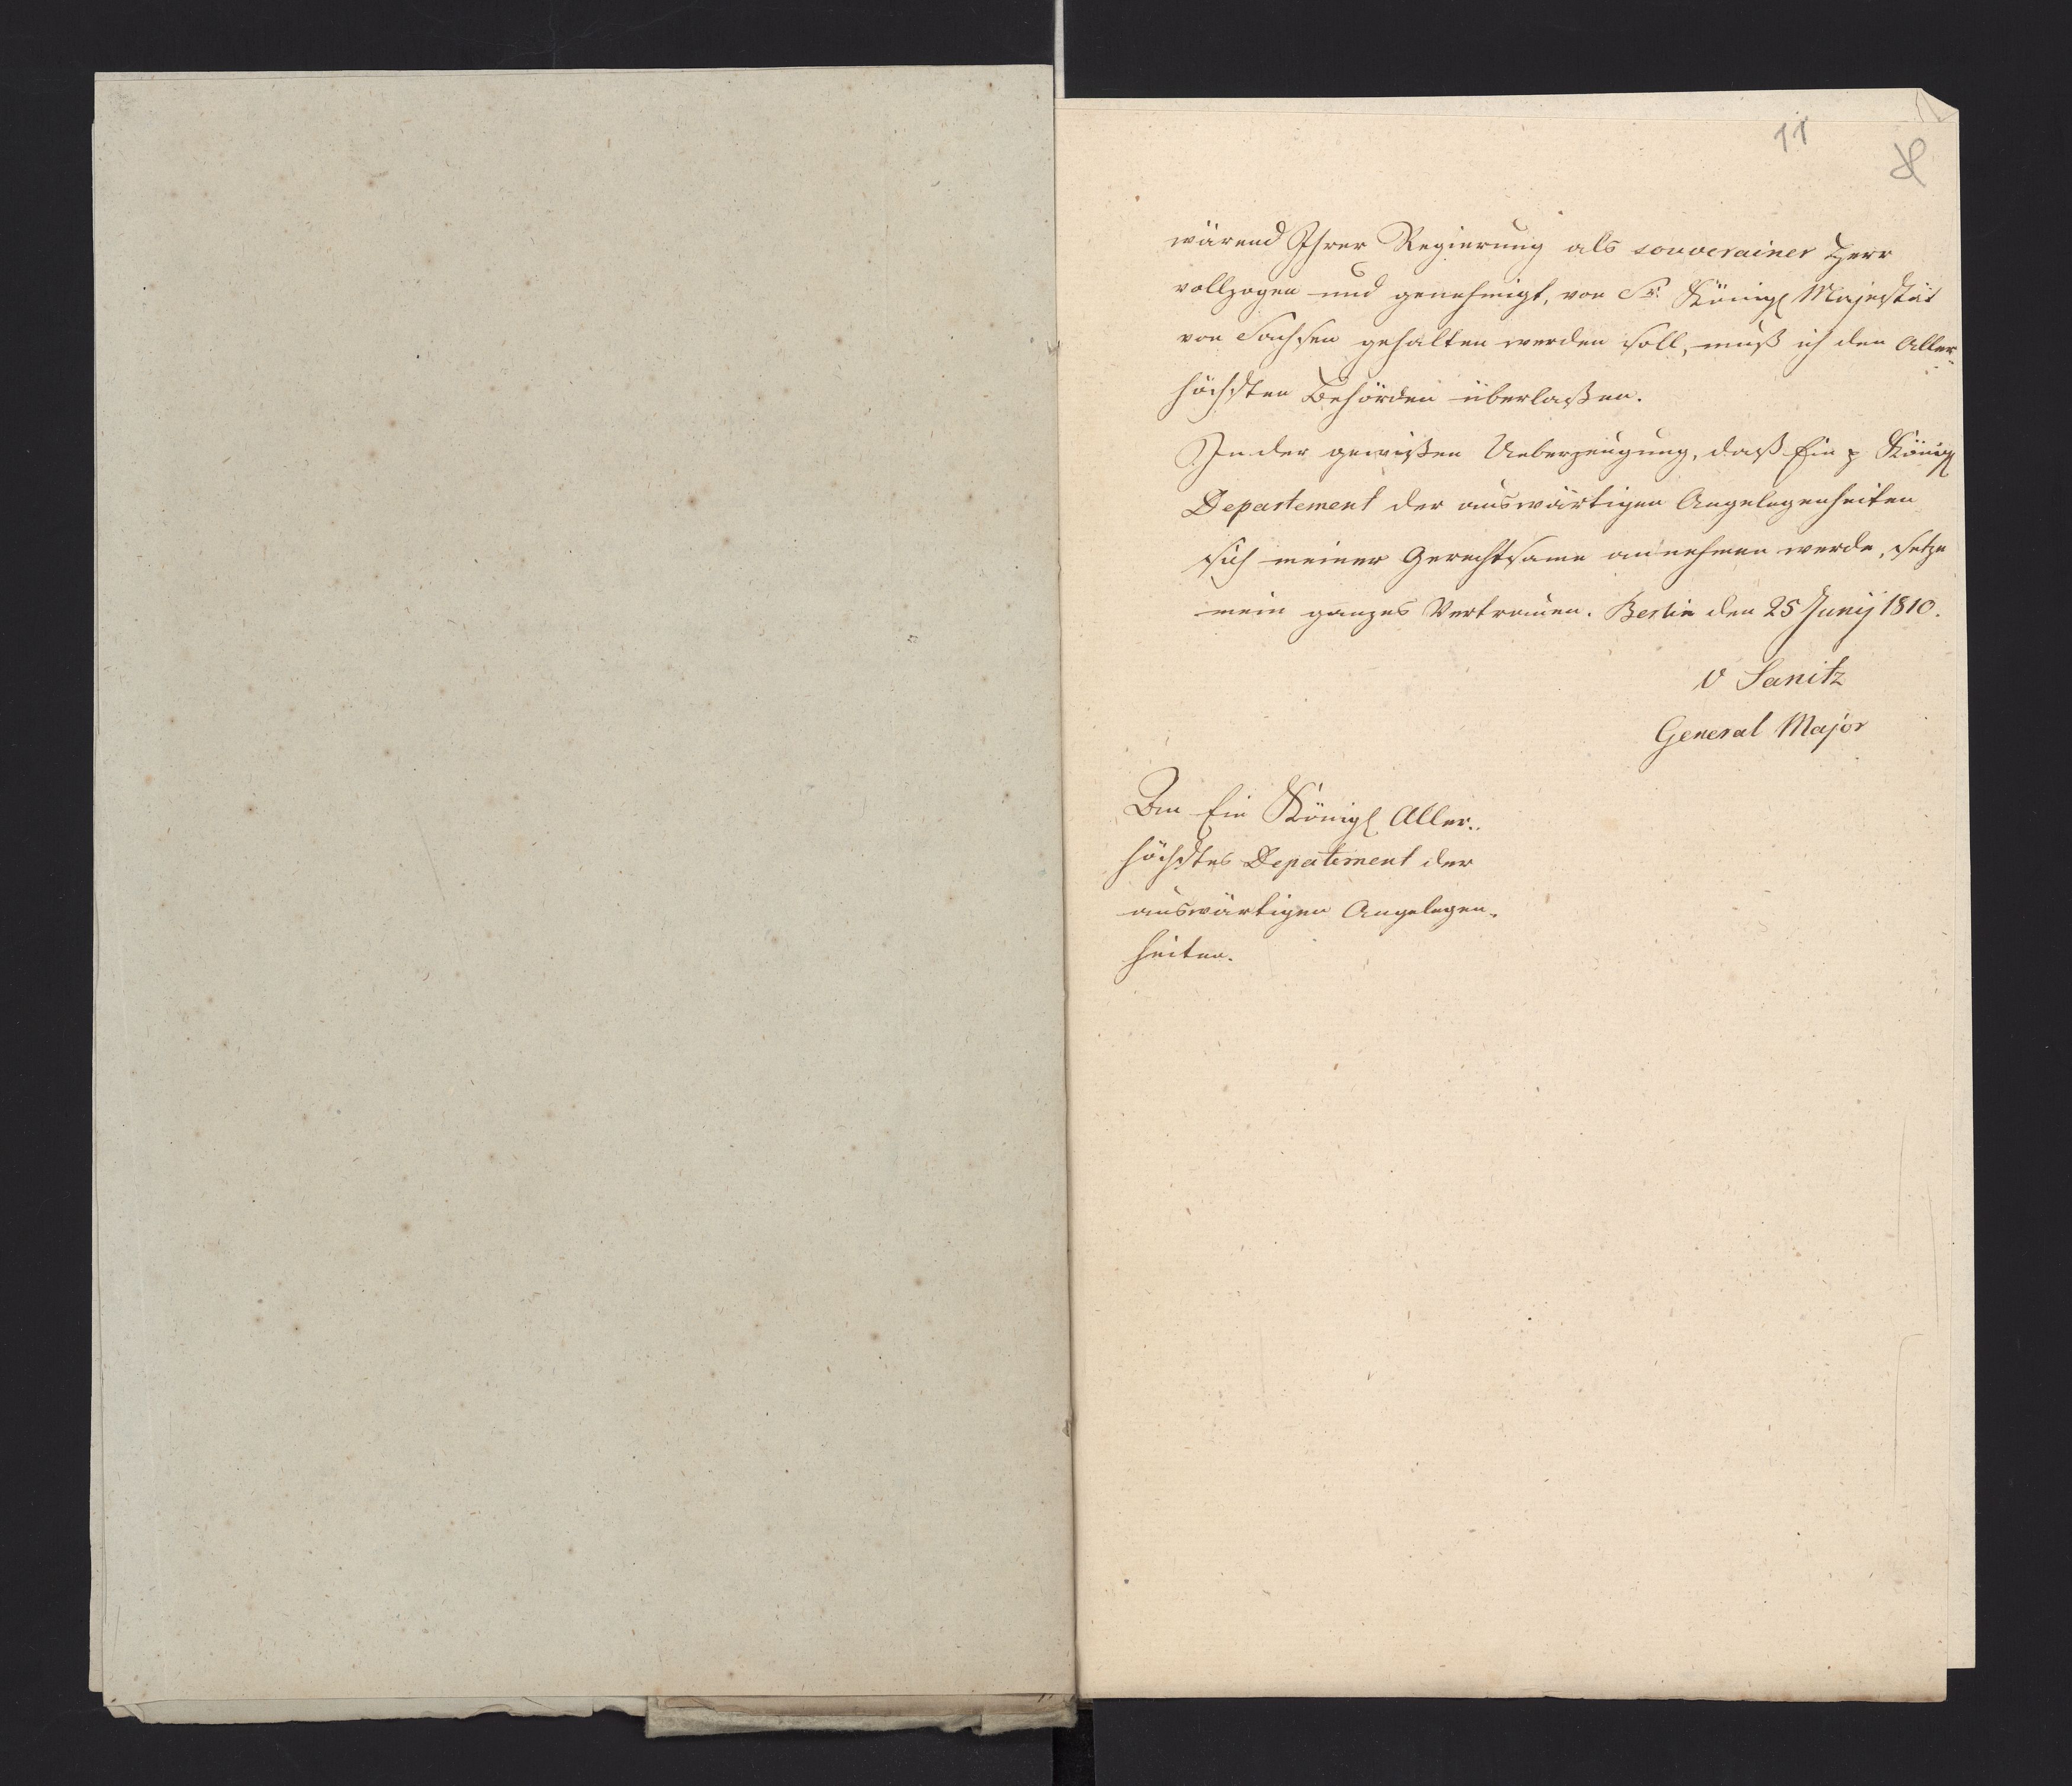 11
wärend Ihrer Regierung als souverainer Herr
vollzogen und genehmigt, von Sr. Königl Majestät
von Sachsen gehalten werden soll, muß ich den Aller-
höchsten Behörden überlaßen.
In der gewißen Ueberzeugung, daß Ein p Königl
Departement der auswärtigen Angelegenheiten
sich meiner Gerechtsame annehmen werde, setze
mein ganzes Vertrauen. Berlin den 25 Junij 1810.
v Sanitz
General Major
An Ein Königl Aller-
höchstes Depatement der
auswärtigen Angelegen-
heiten.